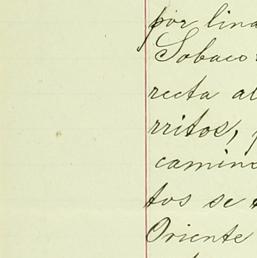 por lina
Sobaco
recta al
rritos,
camino
tos se
Oriente